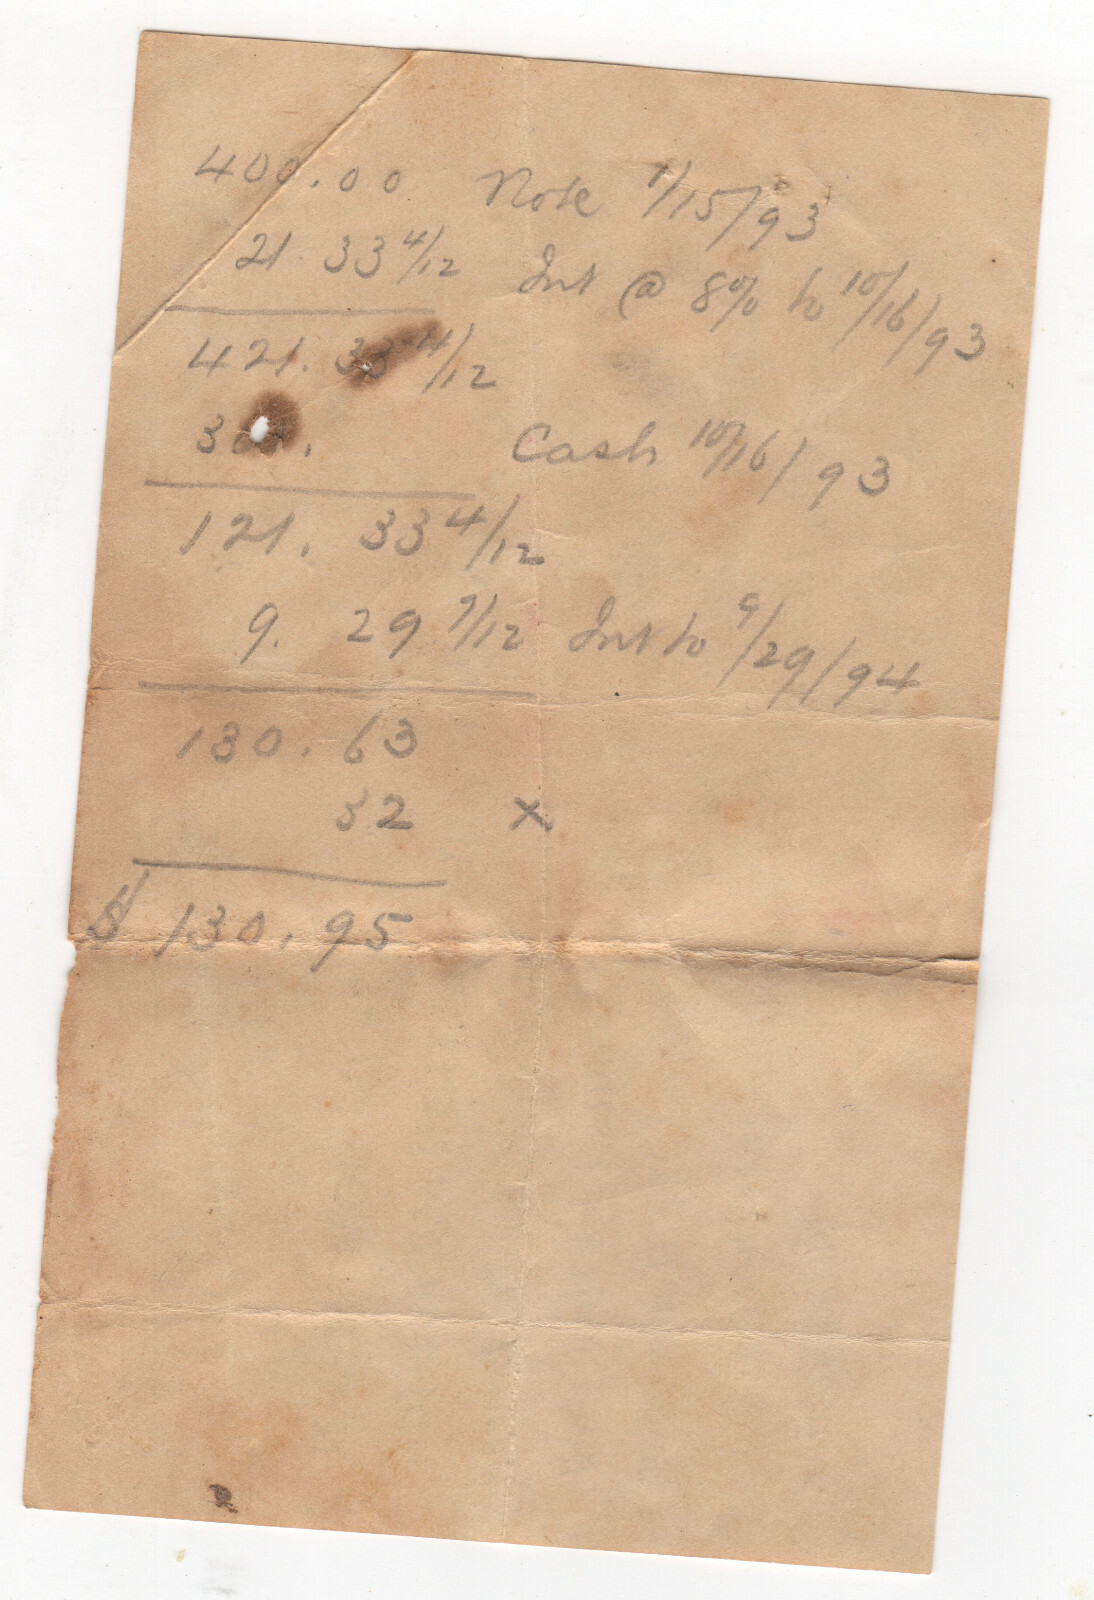 400.00 Note 1/15/93
21.33 4/12 Int @ 8% to 10/16/93
421.33 4/12
300. Cash 10/16/93
121.33 4/12
9.29 7/12 Int to 9/29/94
130.63
32 x
$130.95